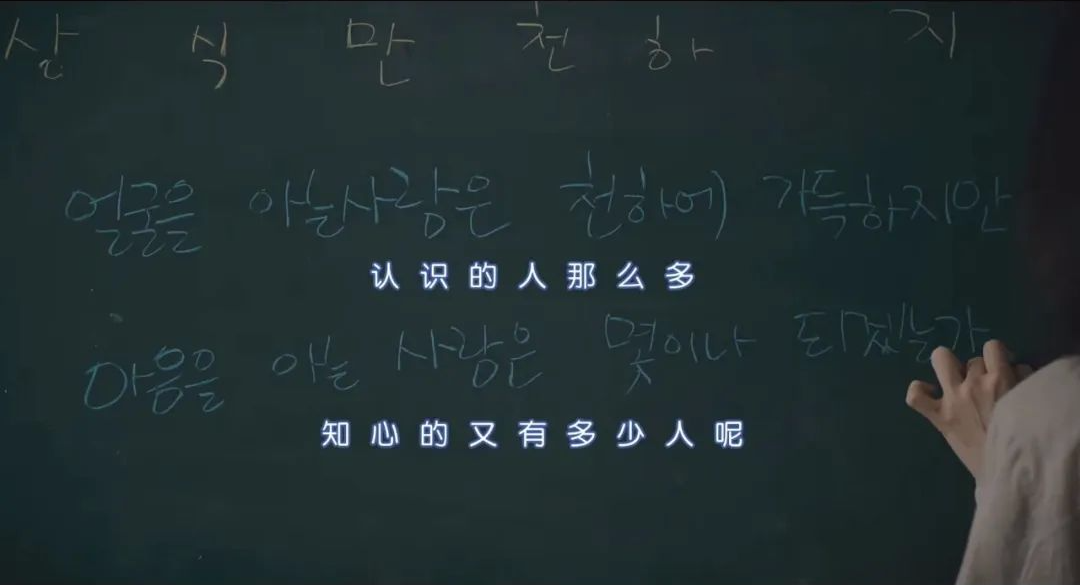 상 식 만 천 하 지
얼굴을 아는사람은 천하에 가득하지만
认识的人那么多
마음을 아는 사람은 몇이나 되겠는가
知心的又有多少人呢